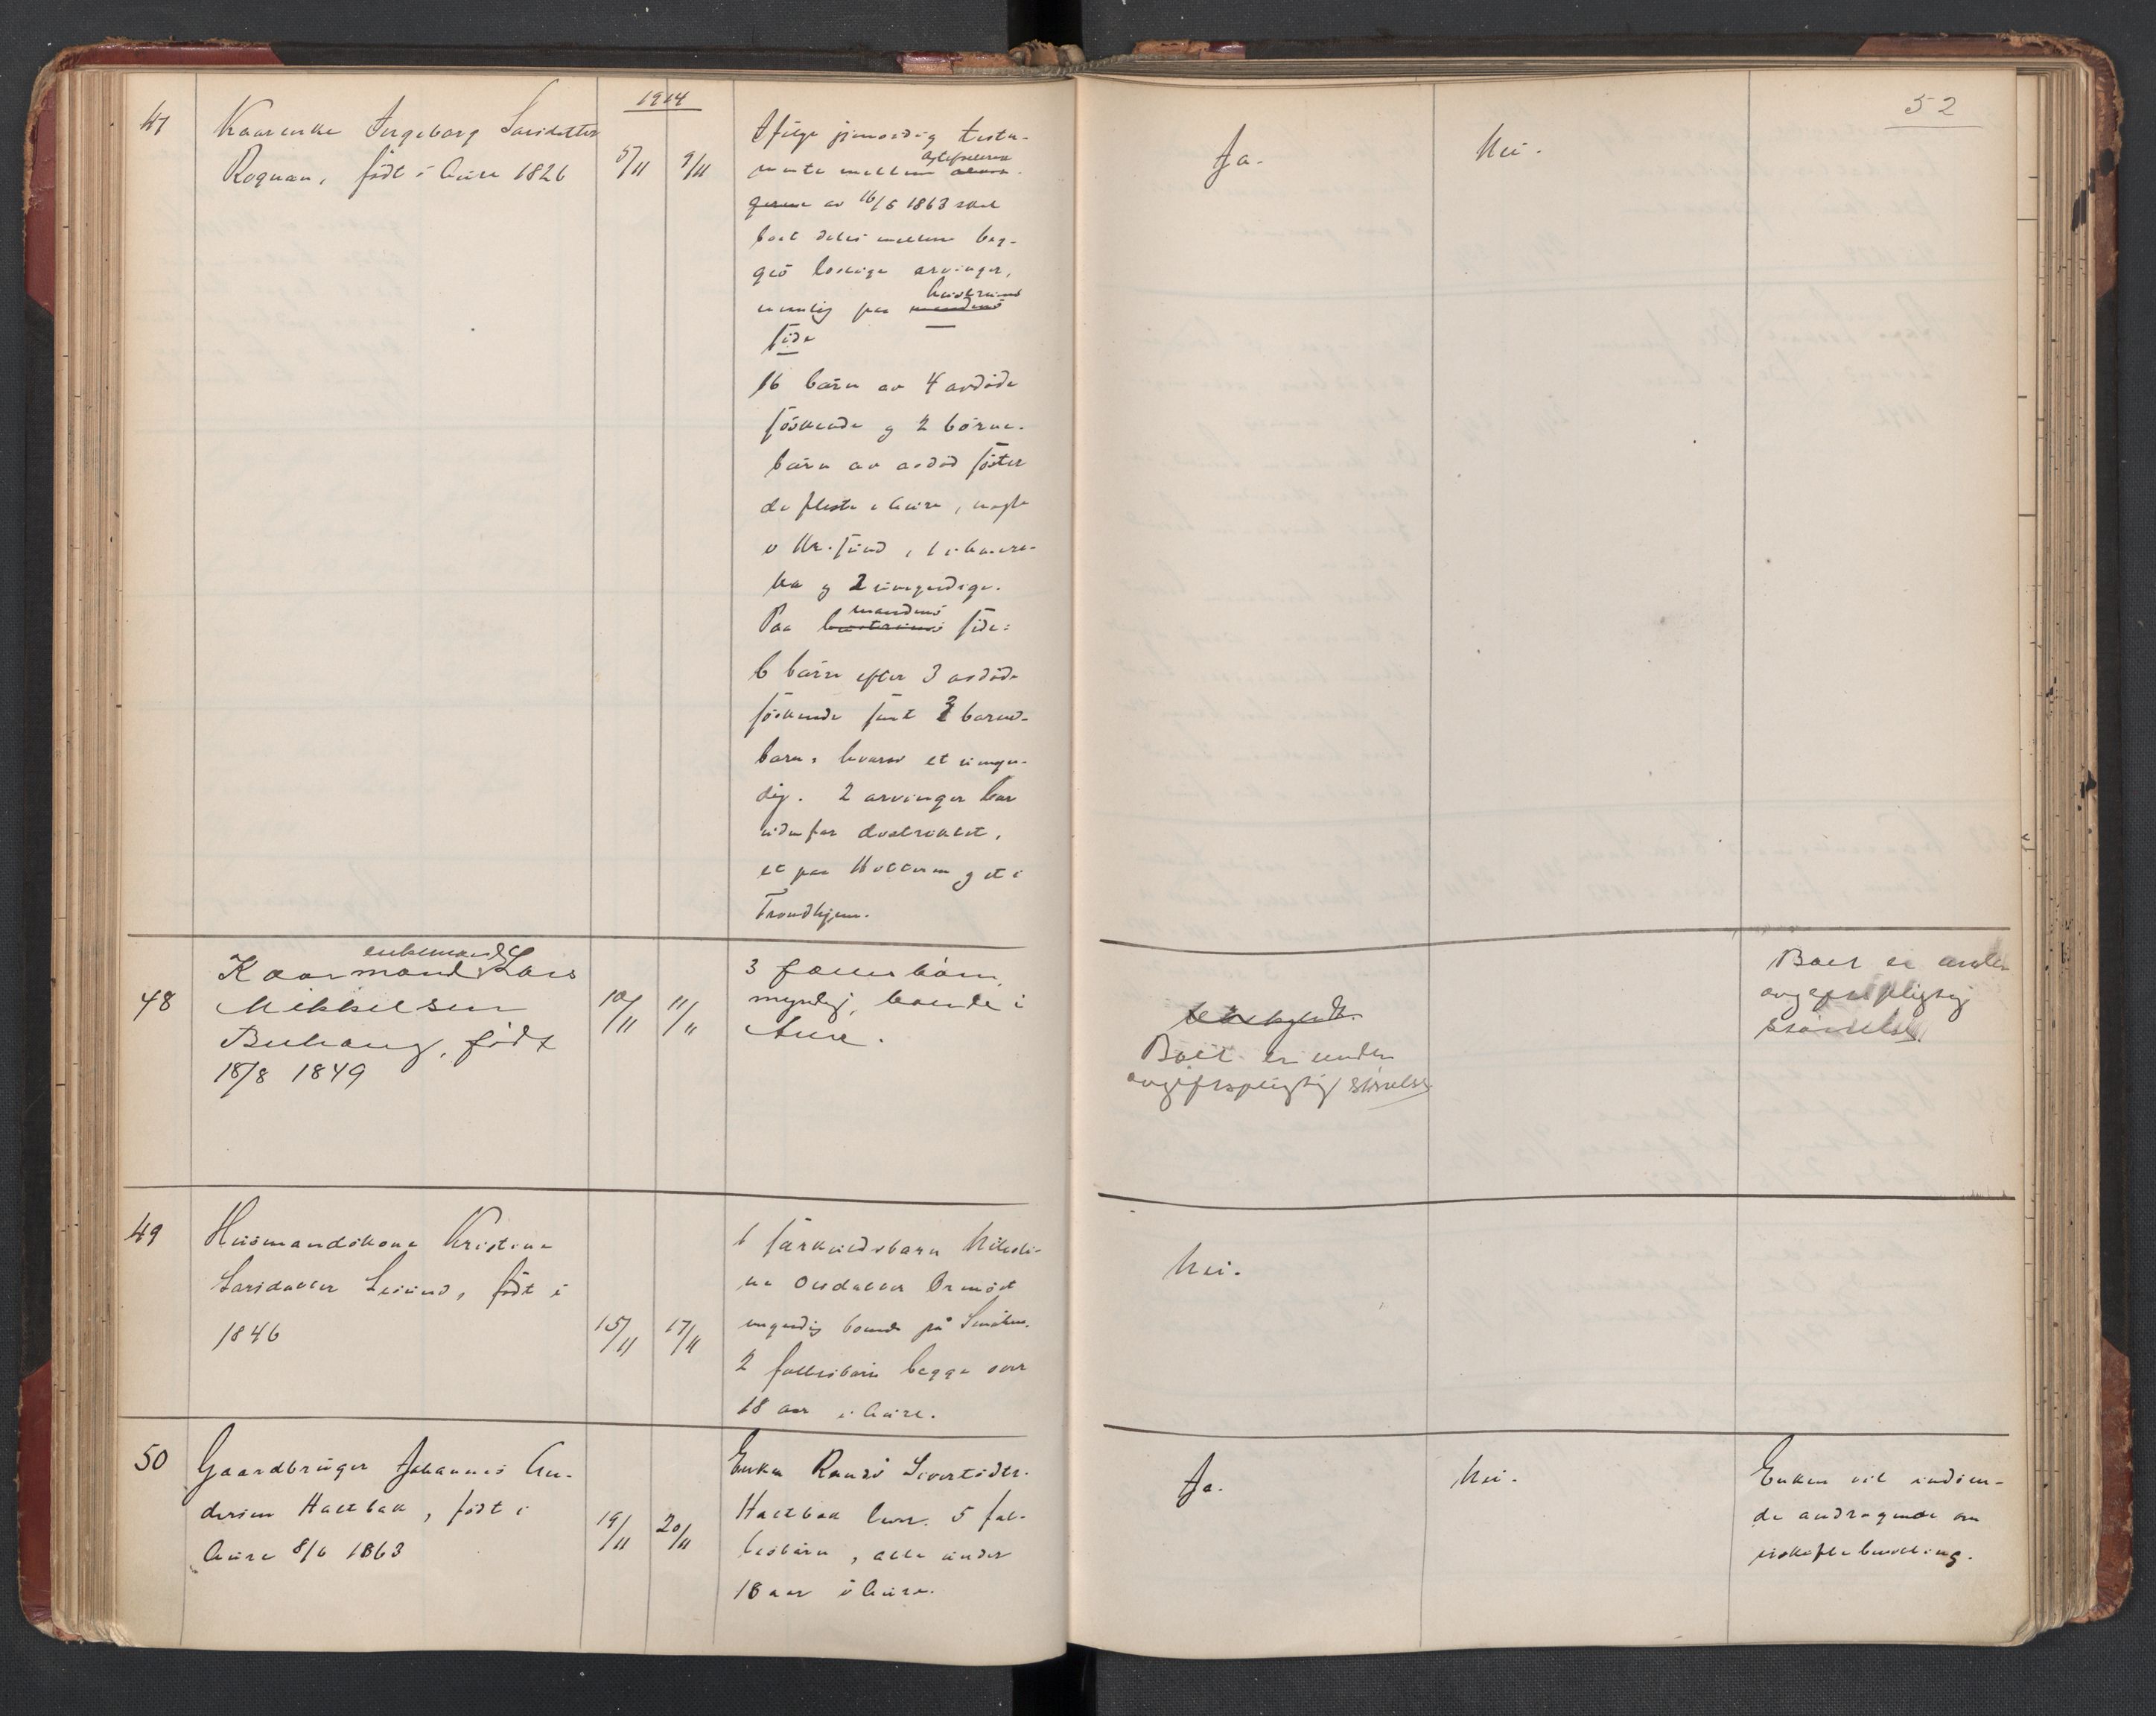 1914
52
47
Kaarenke Ingeborg Larsdatter
Roquan, født i Aure 1826
5/11
9/11
Ifølge gjensidig testa-
mente mellem ægtefællerne
av 16/6 1863 skal
boet deles mellem beg-
ges lovlige arvinger,
nemlig paa hustruens mandens
side
16 børn av 4 avdøde
søskende og 2 børne-
børn av avdød søster
de fleste i Aure, nogle
i Kr.sund, 1 i Ameri-
ka og 2 umyndige.
Paa mandens hustruens side:
6 børn efter 3 avdøde
søskende samt 3 barns-
barn, hvorav et umyn-
dig. 2 arvinger bor
udenfor distriktet,
et paa og et i
Trondhjem.
Ja.
Nei.
48
Kaarmand enkemand Lars
Mikkelsen
Buhaug, født
18/8 1849
10/11
11/11
3 fælles børn,
myndig, boende i
Aure.
Boet er under
avgiftspligtig størrelse
Boet er under
avgiftspligtig
størrelse
49
Husmandskone Kristine
Larsdatter Leiund, født i
1846
15/11
17/11
1 særkuldsbarn Nikoli-
ne Olsdatter Ormset
myndig boende på Smølen.
2 fællesbørn begge over
18 aar i Aure.
Nei.
50
Gaardbruger Johannes An-
dersen Haltbak, født i
Aure 8/6 1863
19/11
20/11
Enken Randi Sivertsdtr.
Haltbak lever. 5 fæl-
lesbørn, alle under
18 aar i Aure.
Ja.
Nei.
Enken vil indsen-
de andragende om
uskiftebevilling.